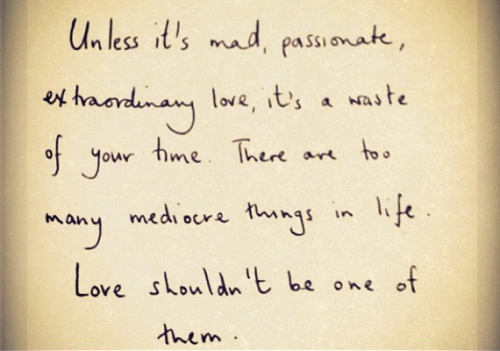 Unless it's mad, passionate,
extraordinary love, it's a waste
of your time. There are too
many mediocre things in life.
Love shouldn't be one of
them.